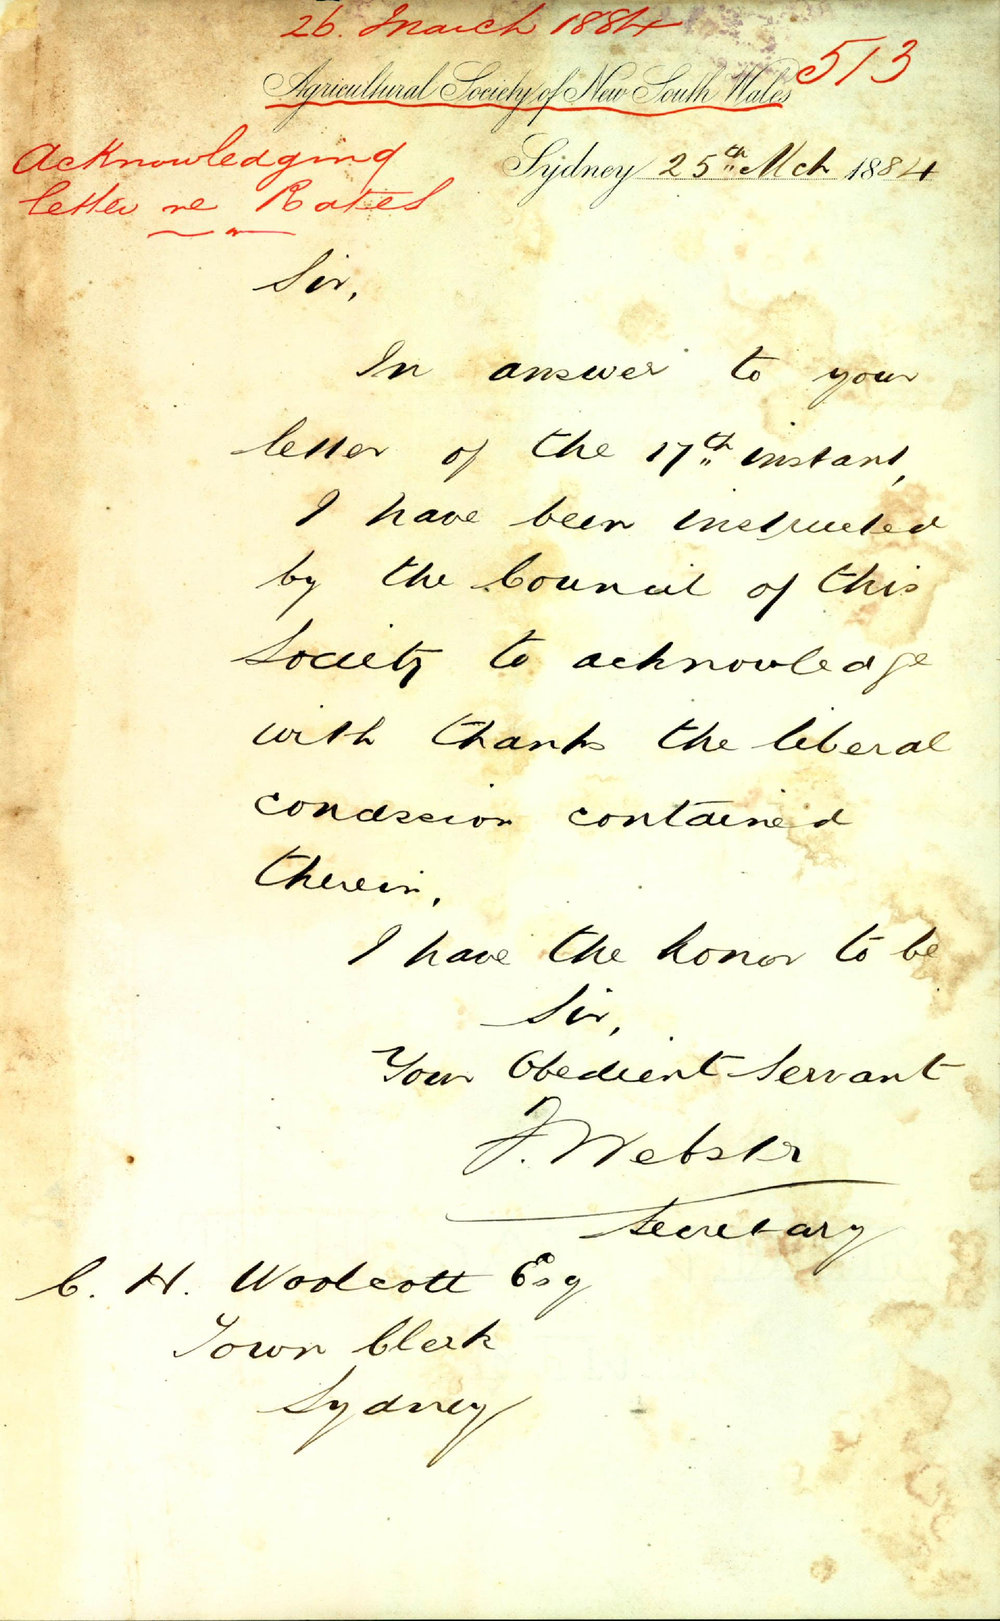 26. March 1884
513
Agricultural Society of New South Wales
Acknowledging
letter re Rates
Sydney 25th Mch 1884
Sir,
In answer to your
letter of the 17th instant,
I have been instructed
by the Council of this
Society to acknowledge
with thanks the liberal
concession contained
therein,
I have the honor to be
Sir,
Your Obedient Servant
J. Webster
Secretary
C. H. Woolcott Esq
Town Clerk
Sydney